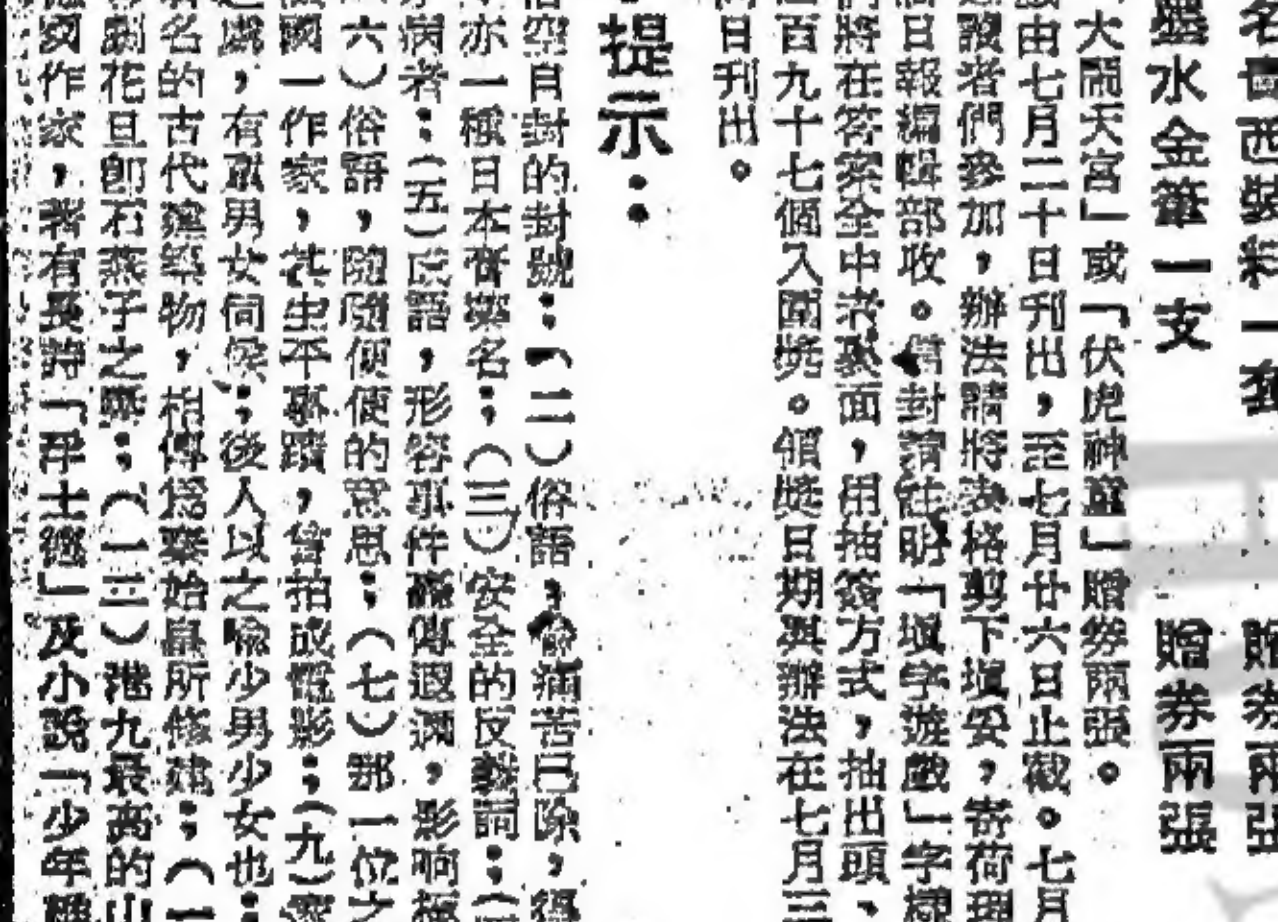 名 西裝料一套 贈券兩張
墨水金筆一支 贈券兩張
大鬧天宮」或「伏虎神童」贈券兩張。
由七月二十日刊出,至七月廿六日止截。七月
讀者們參加,辦法請將表格剪下填妥,寄荷理
日報編輯部收。信封請註明「填字遊戲」字樣
將在答案全中者裏面,用抽簽方式,抽出頭、
百九十七個入圍獎。領獎日期與辦法在七月三
日刊出。
提示:
悟空自封的封號;(二)俗語,喻痛苦已除,得
亦一種日本音樂名;(三)安全的反義詞;
病者;(五)成語,形容事件 傳遐邇,影响
六)俗語,隨隨便便的意思;(七)那一位
國一作家,其生平事蹟,曾拍成電影;(九)
處,有眾男女伺候;後人以之喻少男少女也;
名的古代建築物,相傳為秦始皇所修建;(一
劇花旦即石燕子之 ;(一三)港九最高的山
國作家,著有長詩「浮士德」及小說「少年